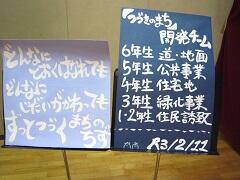 どんなに
とおくはなれても
どんなに
じだいがかわっても
ずっとつづく まちの
「つづきのまち」
開発チーム
6年生 道・地面
5年生 公共事業
4年生 住宅地
3年生 緑化事業
1・2年生 住民誘致
R3/2/22